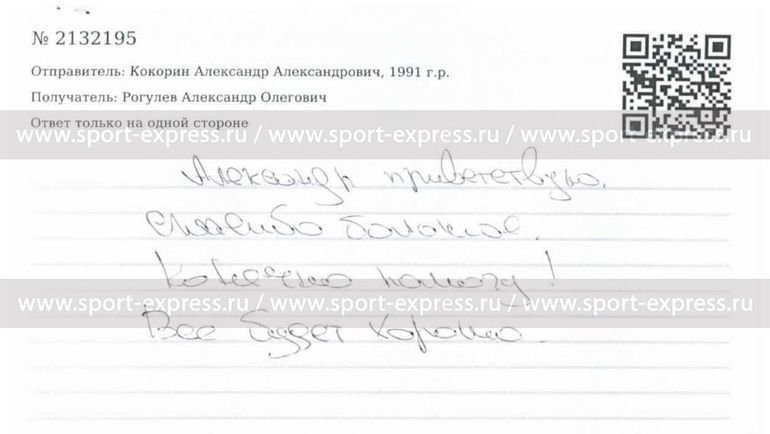 № 2132195
Отправитель: Кокорин Александр Александрович, 1991 г.р.
Получатель: Рогулев Александр Олегович
Ответ только на одной стороне
www.sport-express.ru / www.sport-express.ru / www.sport-express.ru
Александр приветствую.
Спасибо большое.
Конечно помогу!
www.sport-express.ru / www.sport-express.ru / www.sport-express.ru
Все будет хорошо.